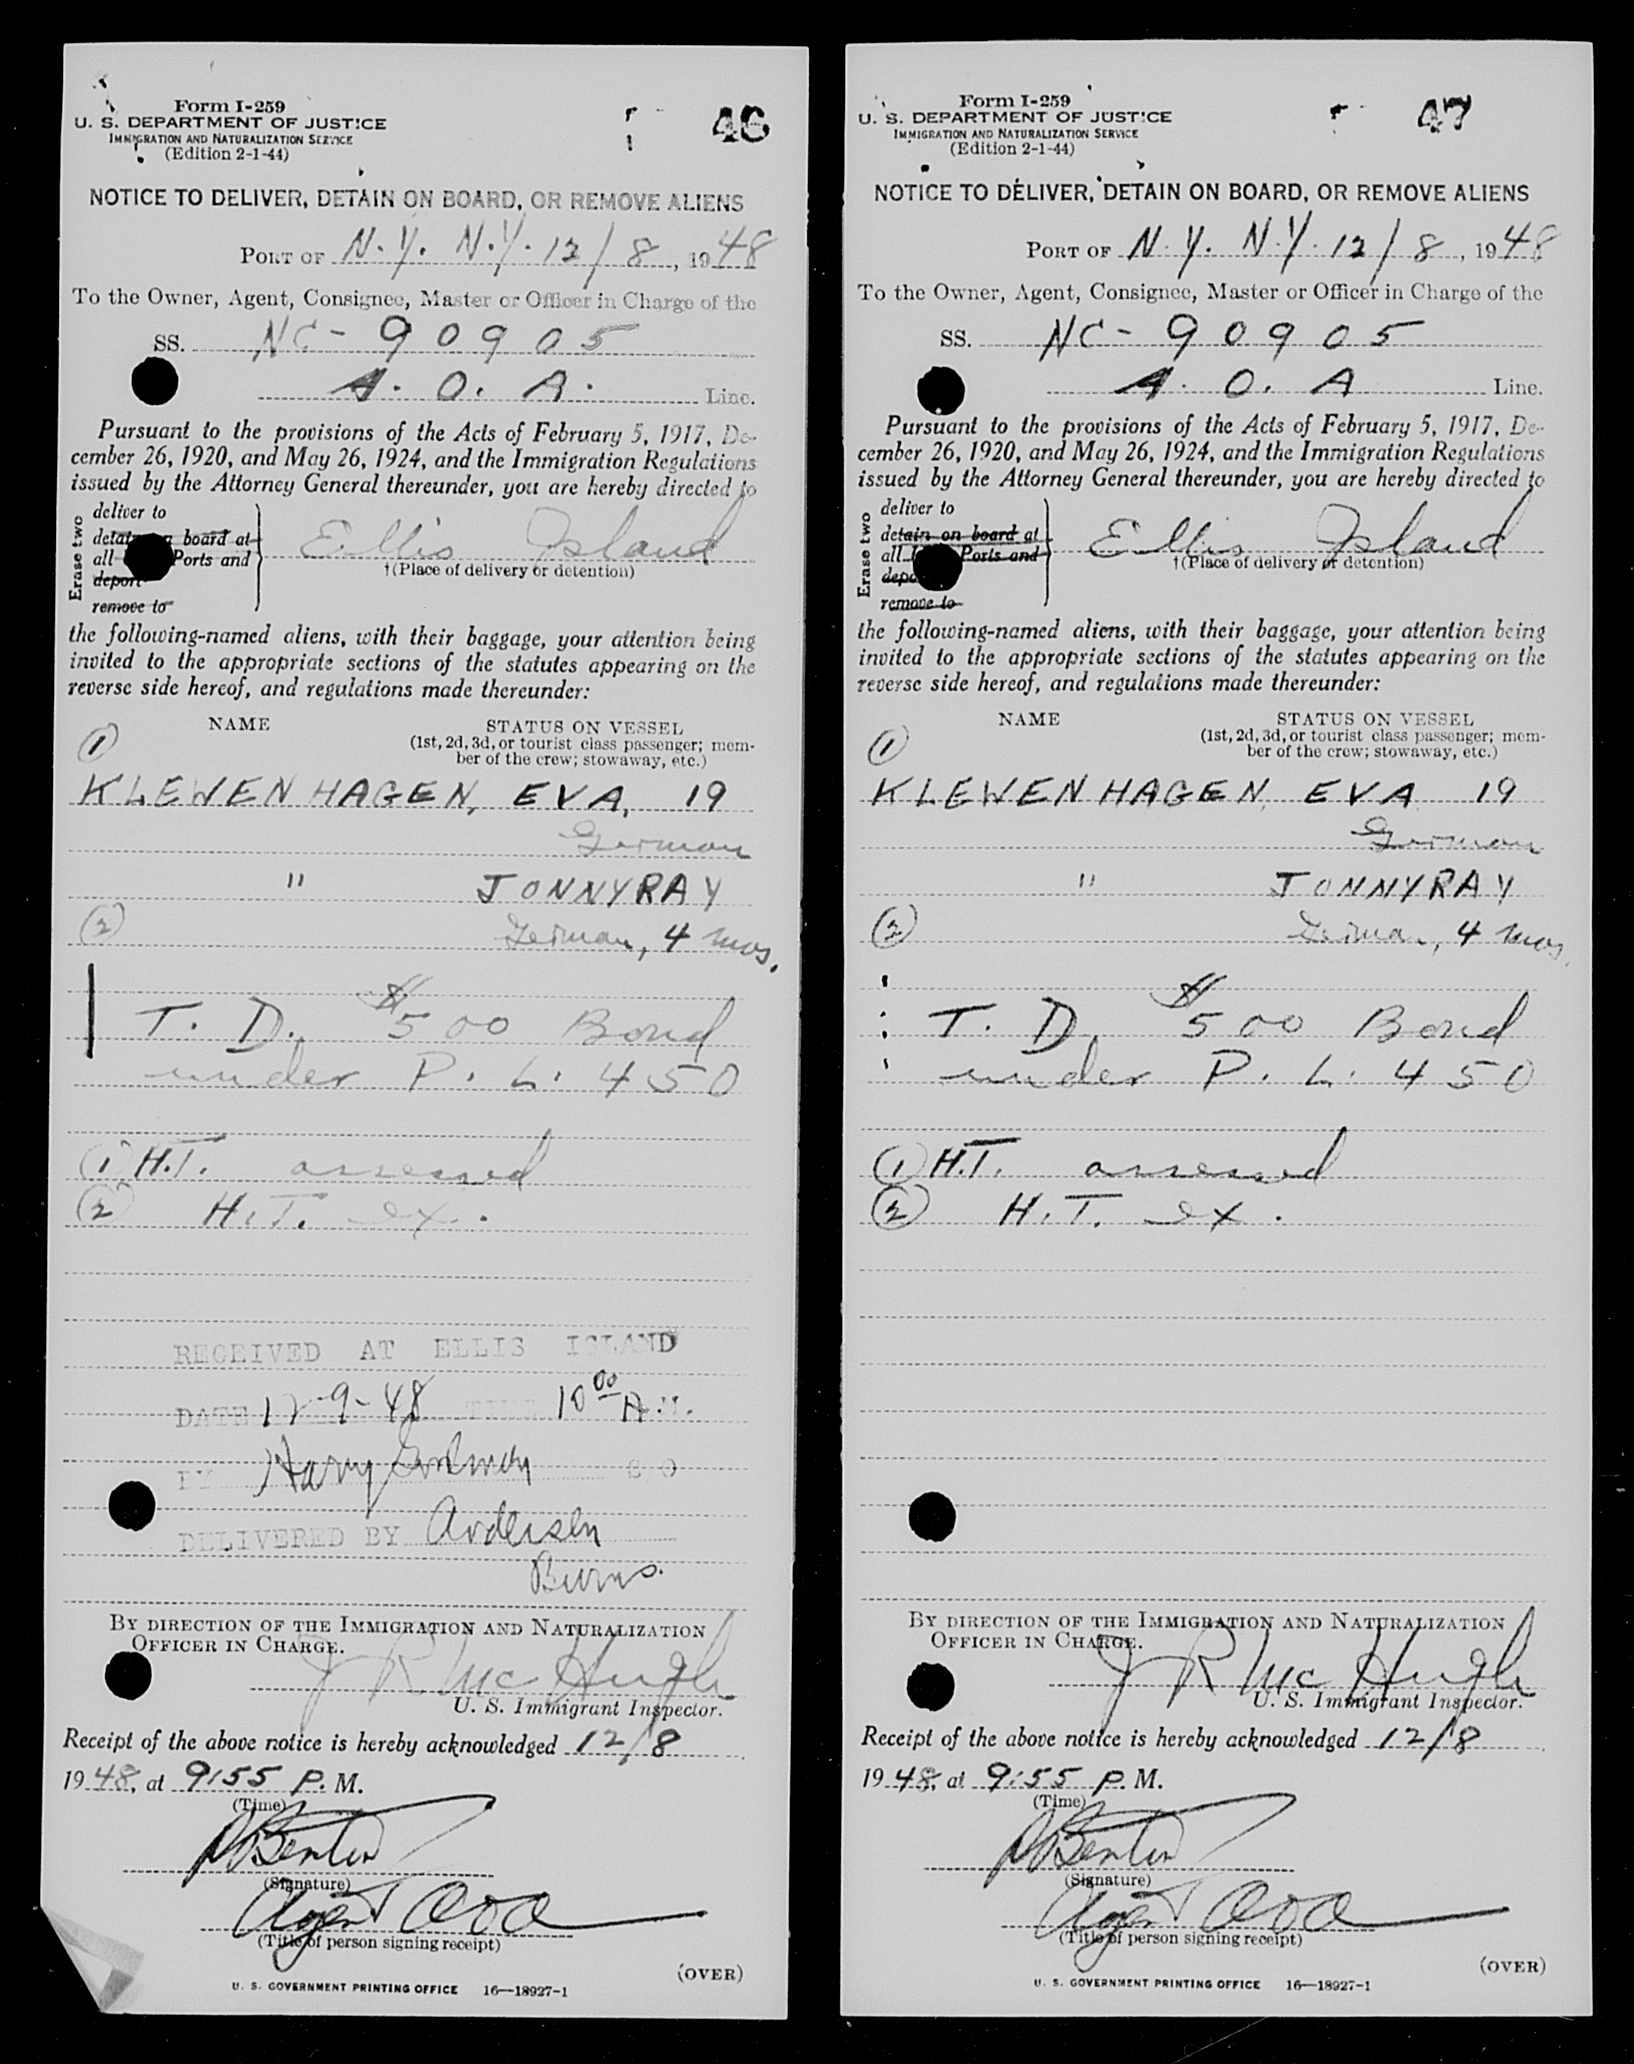 Form I-259
U. S. DEPARTMENT OF JUSTICE
IMMIGRATION AND NATURALIZATION SERVICE
(Edition 2-1-44)
46
NOTICE TO DELIVER, DETAIN ON BOARD, OR REMOVE ALIENS
PORT OF N.Y. N.Y. 12/8, 1948
To the Owner, Agent, Consignee, Master or Officer in Charge of the
SS. NC-90905
A. O. A. Line.
Pursuant to the provisions of the Acts of February 5, 1917, De-
cember 26, 1920, and May 26, 1924, and the Immigration Regulations
issued by the Attorney General thereunder, you are hereby directed to
Erase two
deliver to
detain on board at
all Ports and
deport
remove to
Ellis Island
†(Place of delivery or detention)
the following-named aliens, with their baggage, your attention being
invited to the appropriate sections of the statutes appearing on the
reverse side hereof, and regulations made thereunder:
NAME STATUS ON VESSEL
(1st, 2d, 3d, or tourist class passenger; mem-
ber of the crew; stowaway, etc.)
①
KLEWENHAGEN, EVA, 19
German
" JONNYRAY
② German, 4 mos.
T. D. $500 Bond
under P. L. 450
① H.T. assessed
② H.T. ex.
RECEIVED AT ELLIS ISLAND
DATE 12-9-48 TIME 10 00 A.M.
BY Harry S O
DELIVERED BY Andersen
Burns.
BY DIRECTION OF THE IMMIGRATION AND NATURALIZATION
OFFICER IN CHARGE.
J R McHugh
U. S. Immigrant Inspector.
Receipt of the above notice is hereby acknowledged 12/8
1948, at 9:55 P. M.
(Time)
Benton
(Signature)
Agent AOA
(Title of person signing receipt)
(OVER)
U. S. GOVERNMENT PRINTING OFFICE 16—18927-1
Form I-259
U. S. DEPARTMENT OF JUSTICE
IMMIGRATION AND NATURALIZATION SERVICE
(Edition 2-1-44)
47
NOTICE TO DELIVER, DETAIN ON BOARD, OR REMOVE ALIENS
PORT OF N.Y. N.Y. 12/8, 1948
To the Owner, Agent, Consignee, Master or Officer in Charge of the
SS. NC-90905
A. O. A Line.
Pursuant to the provisions of the Acts of February 5, 1917, De-
cember 26, 1920, and May 26, 1924, and the Immigration Regulations
issued by the Attorney General thereunder, you are hereby directed to
Erase two
deliver to
detain on board at
all Ports and
deport
remove to
Ellis Island
†(Place of delivery or detention)
the following-named aliens, with their baggage, your attention being
invited to the appropriate sections of the statutes appearing on the
reverse side hereof, and regulations made thereunder:
NAME STATUS ON VESSEL
(1st, 2d, 3d, or tourist class passenger; mem-
ber of the crew; stowaway, etc.)
①
KLEWENHAGEN, EVA 19
German
" JONNYRAY
② German, 4 mos.
T. D. $500 Bond
under P. L. 450
① H.T. assessed
② H.T. ex.
BY DIRECTION OF THE IMMIGRATION AND NATURALIZATION
OFFICER IN CHARGE.
J R McHugh
U. S. Immigrant Inspector.
Receipt of the above notice is hereby acknowledged 12/8
1948, at 9:55 P. M.
(Time)
Benton
(Signature)
Agent AOA
(Title of person signing receipt)
(OVER)
U. S. GOVERNMENT PRINTING OFFICE 16—18927-1